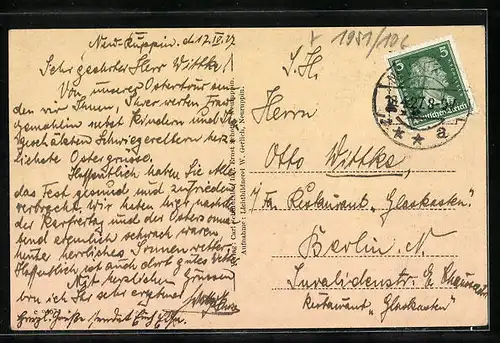 Neu-Ruppin, d. 17. IV. 27.
Sehr geehrter Herr Wittke!
Von unserer Ostertour senden
wir Ihnen, Ihrer werten Frau
Gemahlin nebst Kindern und
geschätzten Schwiegereltern herz-
lichste Ostergrüsse.
Hoffentlich haben Sie alle
das Fest gesund und zufrieden
verbracht. Wir haben hier, nachdem
der Karfreitag und der Osterso
abend ziemlich schwach waren,
heute herrliches Sonnenwetter.
Hoffentlich ist auch dort gutes Wetter.
Mit herzlichen Grüssen
bin ich Ihr sehr ergebener
Herzl. Grüsse sendet Euch
Verlag: Carl
Neuruppin.
Aufnahme: Lichtbildnerei W. Gerlich, Neuruppin.
1951/106
S. H.
Herrn
Otto Wittke,
Restaurant „Glaskasten"
Berlin N.
Invalidenstr.
Restaurant „Glaskasten"
5 5
Deutsches Reich
27. 8-9V
* * a